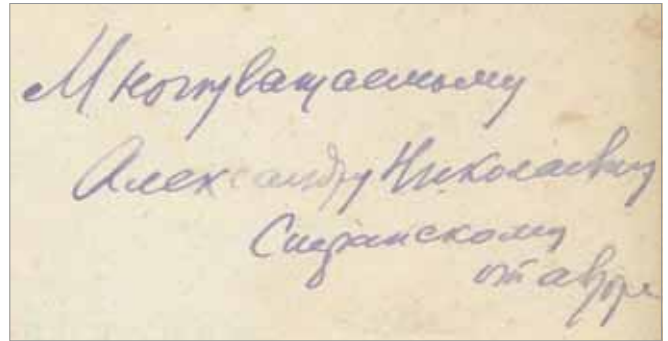 Многоуважаемому
Александру Николаевичу
Сперанскому
от автора